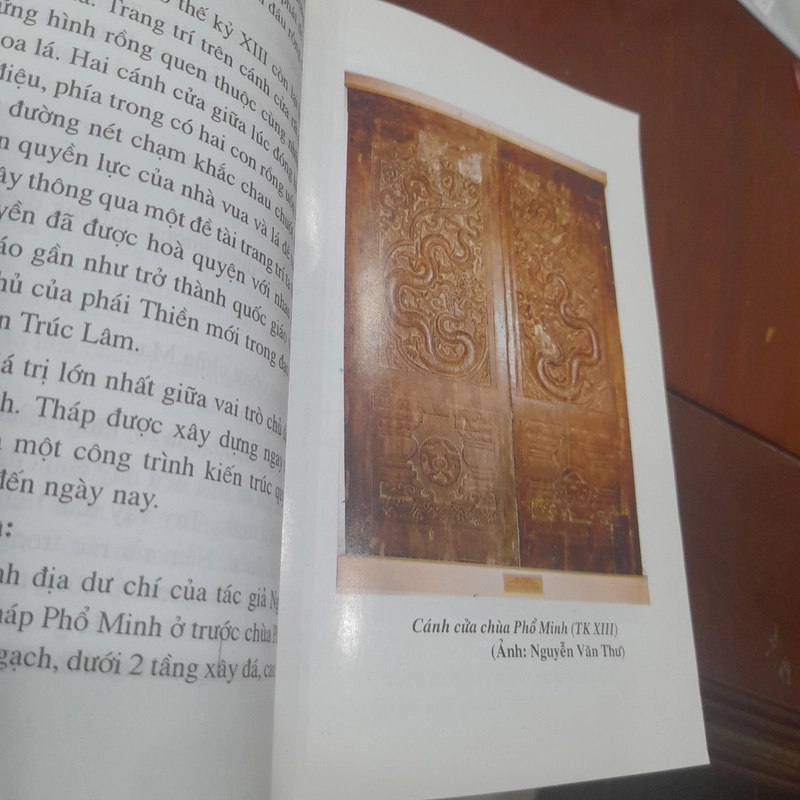 thế kỷ XIII còn
Trang trí trên cánh cửa
hình rồng quen thuộc cùng
hoa lá. Hai cánh cửa giữa lúc đóng
điệu, phía trong có hai con rồng
đường nét chạm khắc chau chuốt
quyền lực của nhà vua và lá đề
thông qua một đề tài trang trí
đã được hoà quyện với nhau
gần như trở thành quốc giáo
của phái Thiền mới trong
Trúc Lâm.
trị lớn nhất giữa vai trò chủ
Tháp được xây dựng ngay
một công trình kiến trúc
đến ngày nay.
địa dư chí của tác giả
Phổ Minh ở trước chùa
gạch, dưới 2 tầng xây đá, cao
Cánh cửa chùa Phổ Minh (TK XIII)
(Ảnh: Nguyễn Văn Thư)